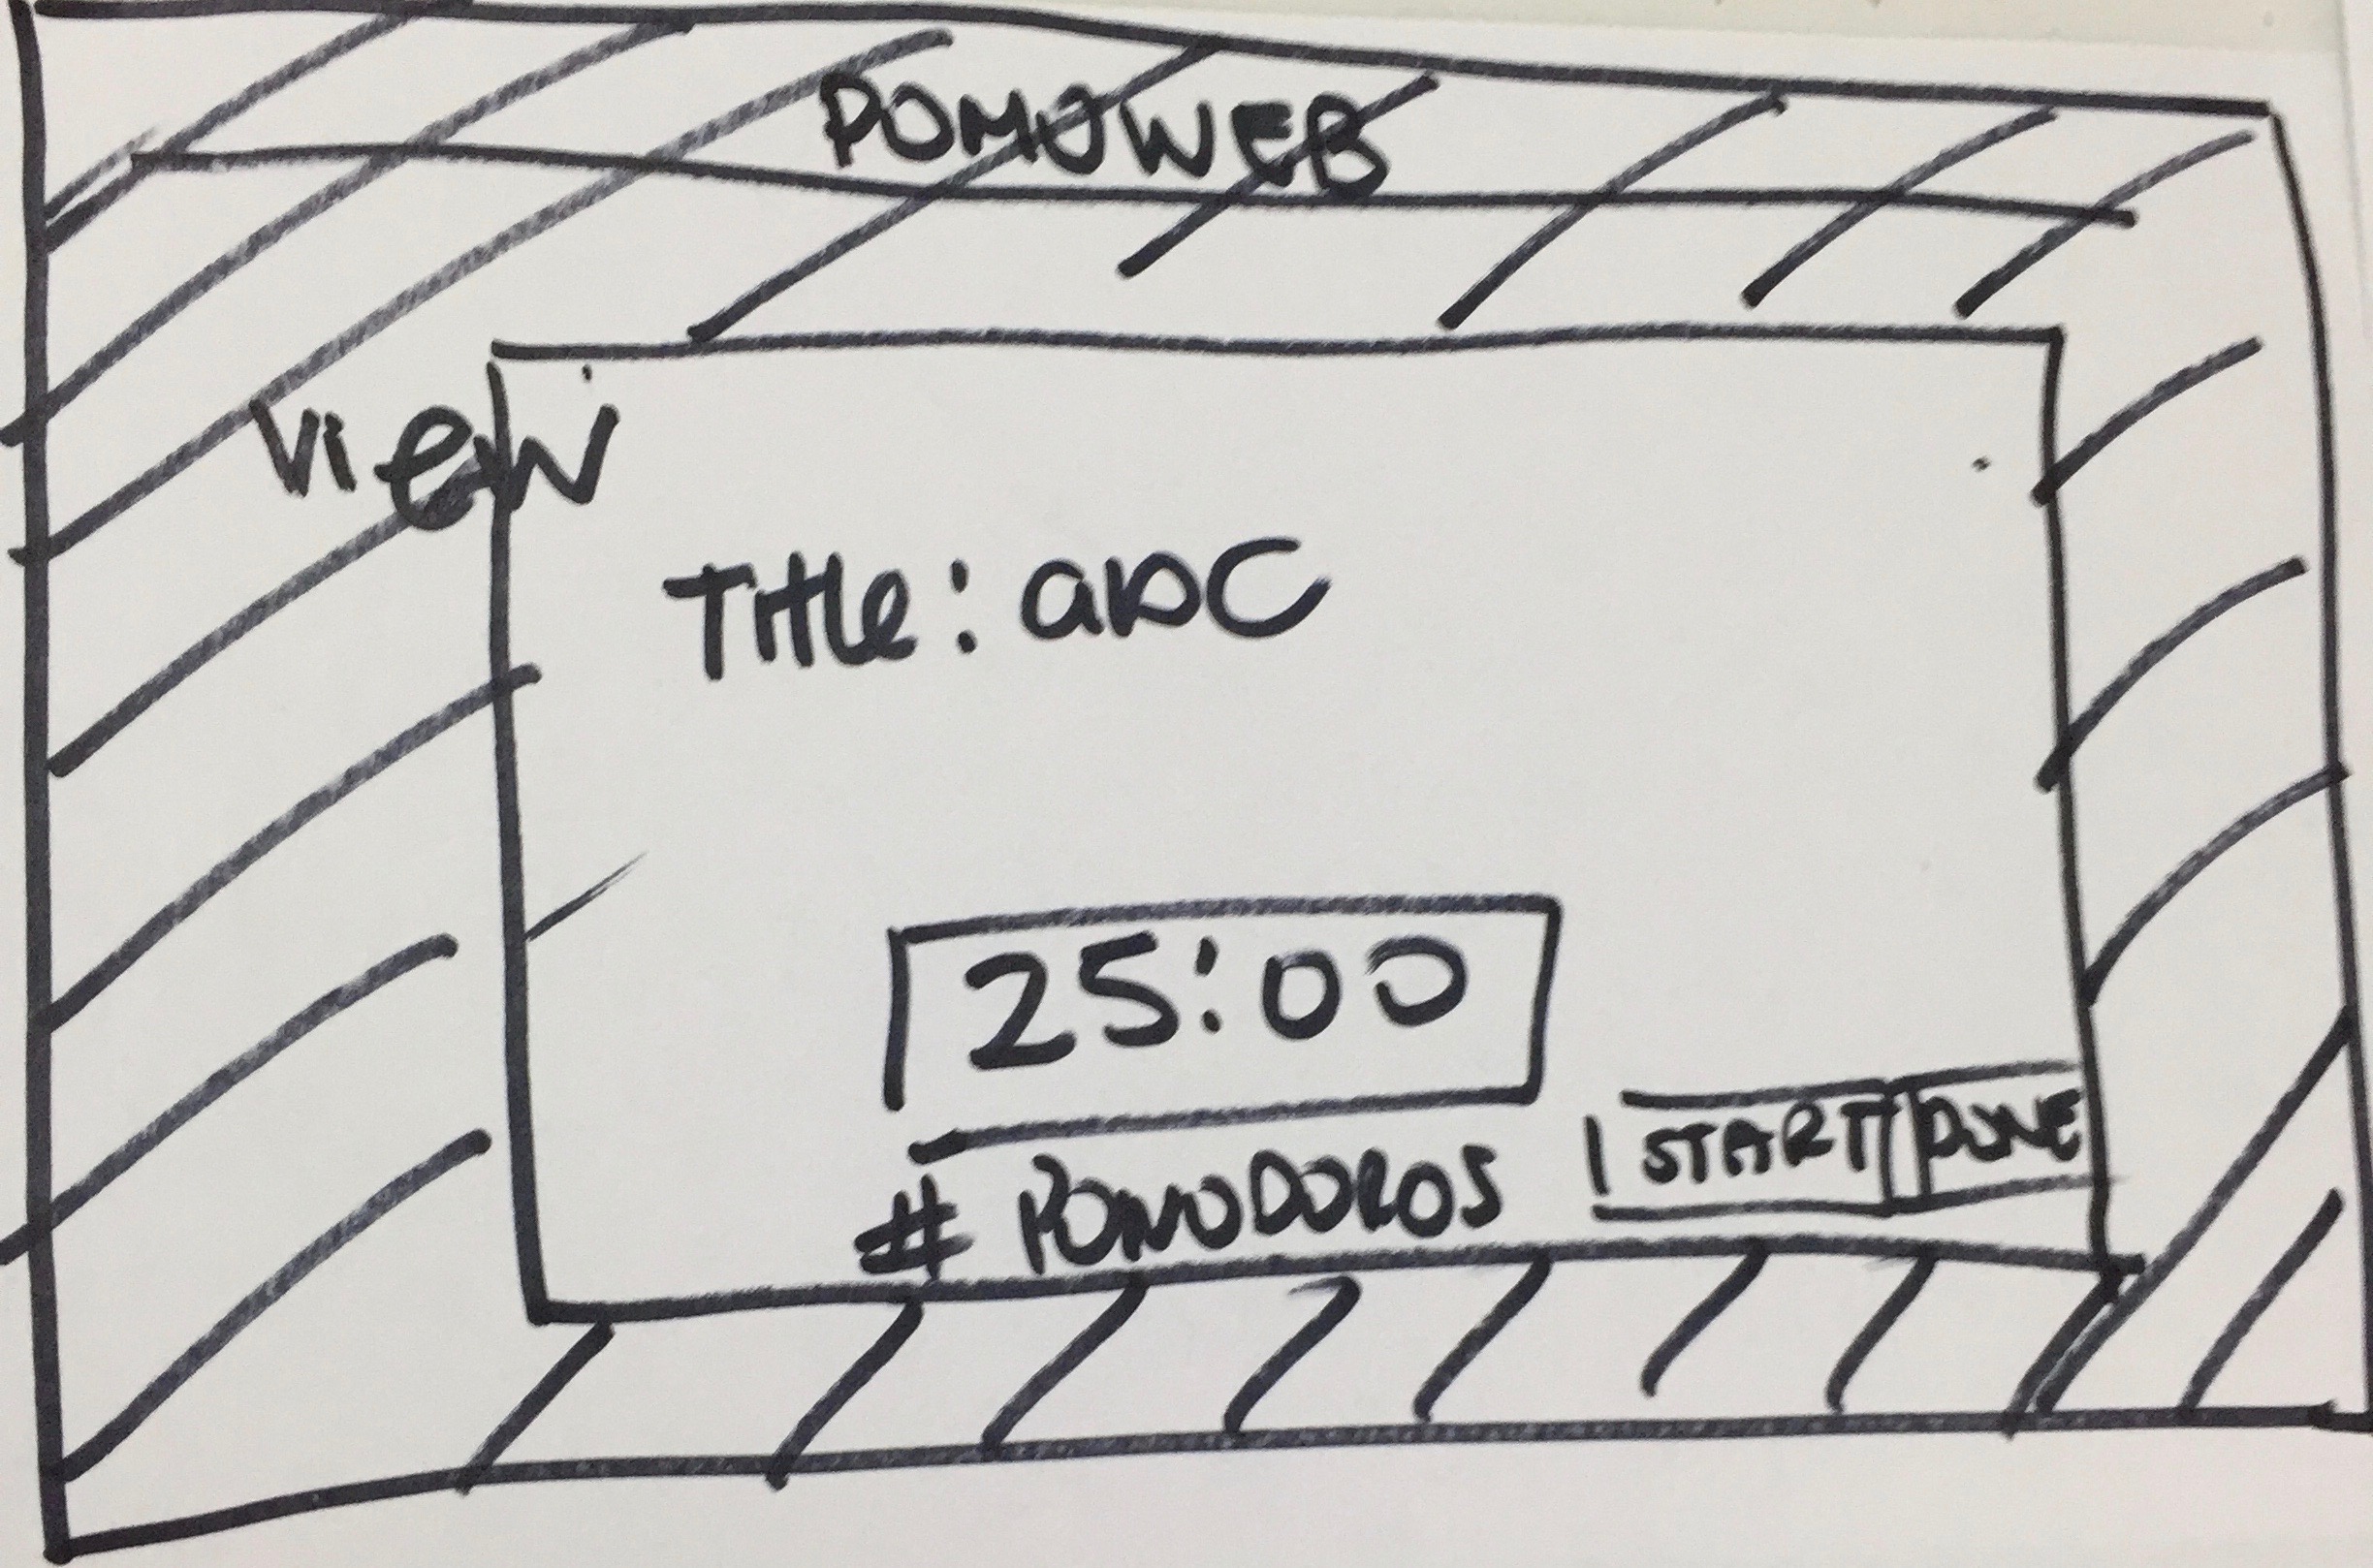 POMOWEB
View
Title: abc
25:00
# POMODOROS
START DONE